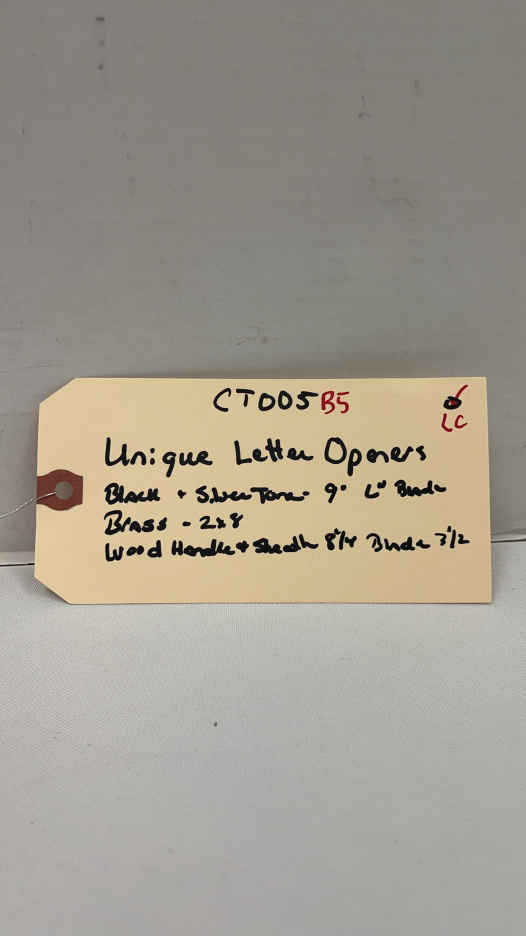 CT005 B5
LC
Unique Letter Openers
Black + Silver Tone - 9" L" Blade
Brass - 2x8
Wood Handle + Sheath 8 1/4 Blade 3 1/2